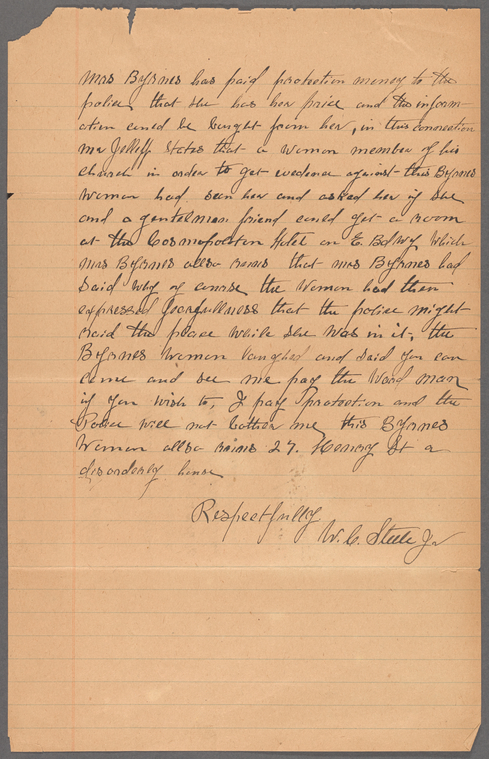 Mrs Byrnes has paid protection money to the
police, that she has her price and this inform-
ation could be bought from her, in this connection
Mr Jelleff states that a woman member of his
church in order to get evedence against this Byrnes
woman had seen her and asked her if she
and a gentelman friend could get a room
at the Cosmopoliton Hotel on E. Bdwy which
Mrs Byrnes allso runs that Mrs Byrnes had
said why of course the woman had then
expressed fearfullness that the police might
raid the place while she was in it, the
Byrnes woman laughed and said you can
come and see me pay the Ward man
if you wish to, I pay protection and the
Police will not bother me, this Byrnes
woman allso runs 27. Henry St a
disorderly house
Respectfully
W. C. Steele Jr